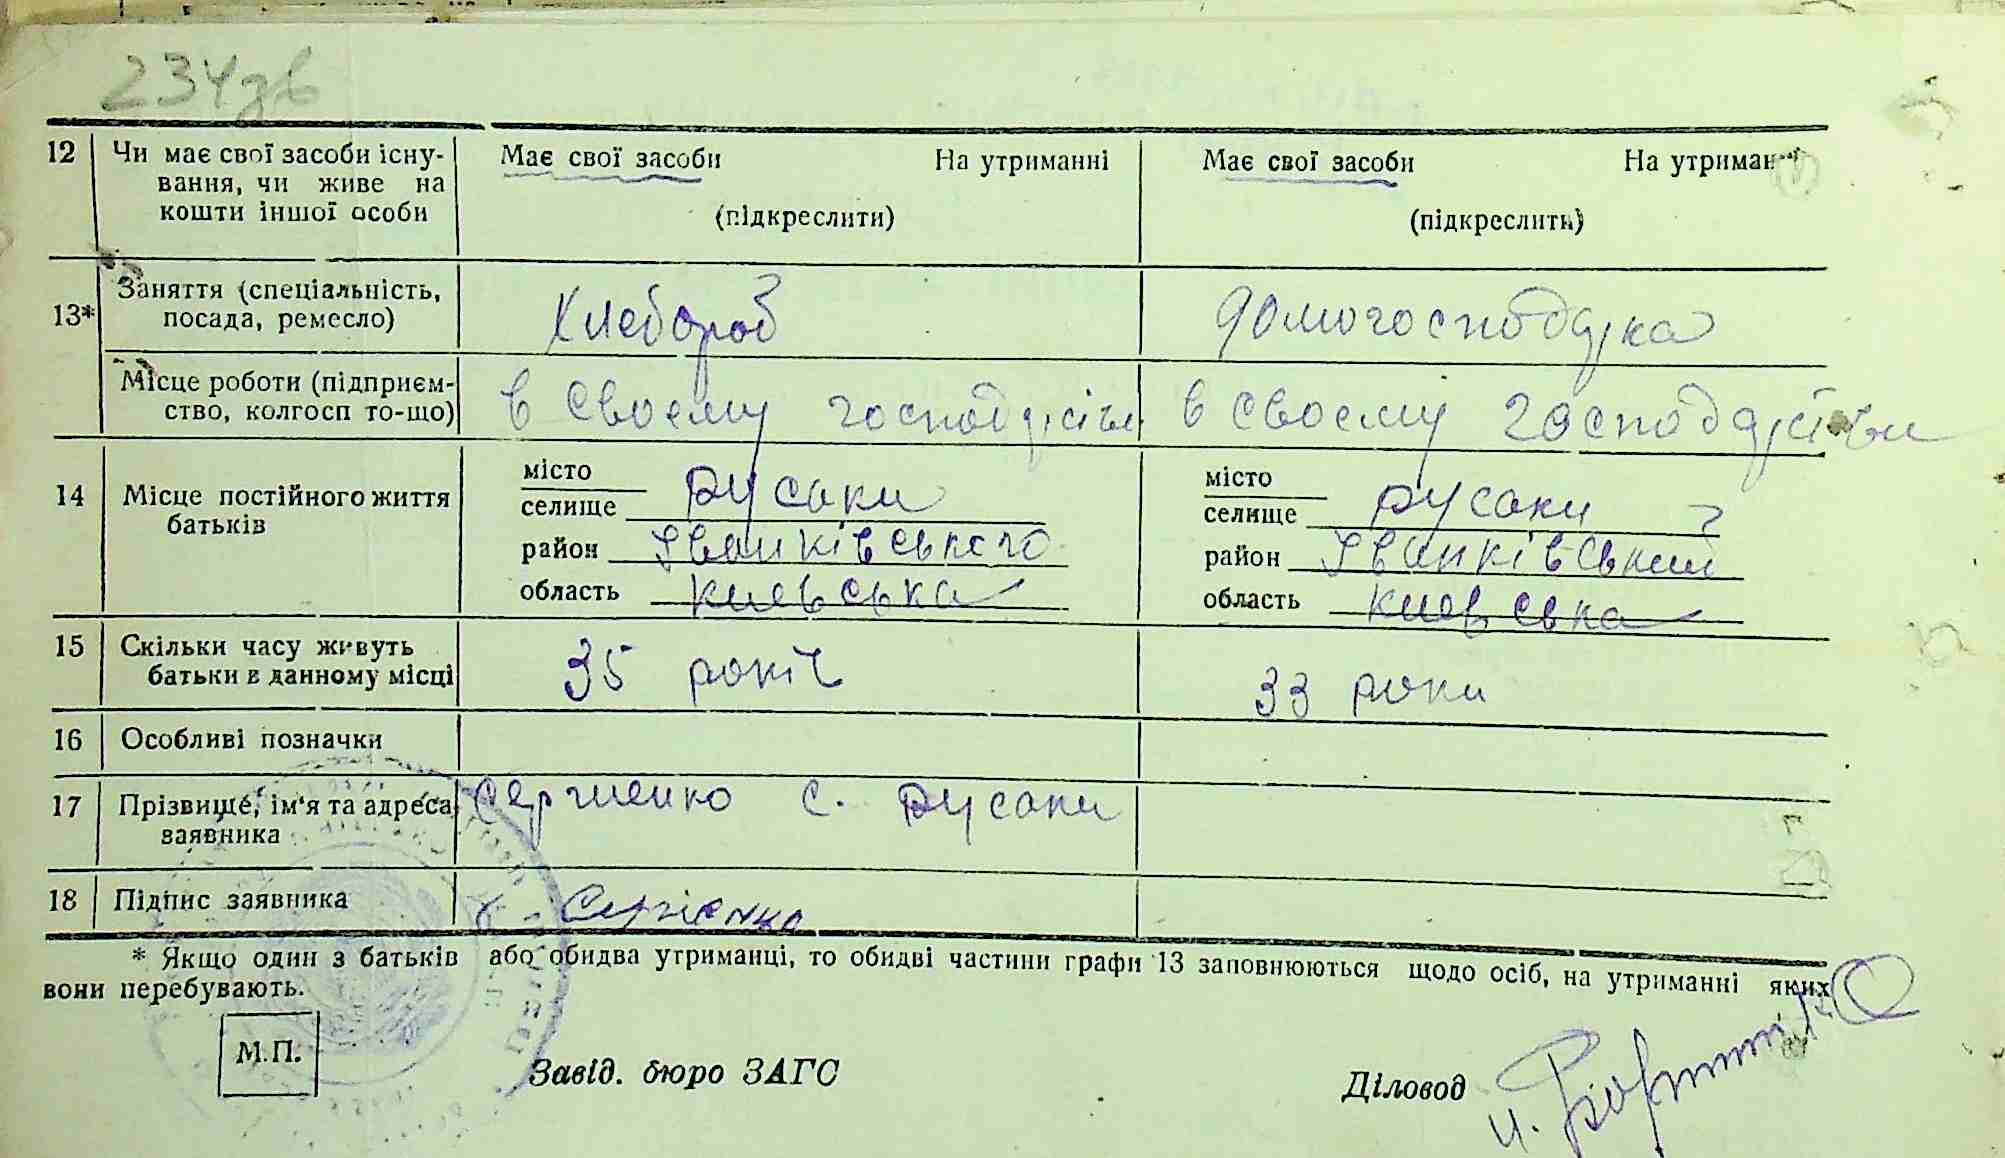 234зв
12 Чи має свої засоби існу- Має свої засоби На утриманні Має свої засоби На утриман
вання, чи живе на
кошти іншої особи (підкреслити) (підкреслить)
13* Заняття (спеціальність, Хлебороб домогосподарка
посада, ремесло)
Місце роботи (підприєм- в своему господарстви в своему господарстви
ство, колгосп то-що)
14 Місце постійного життя місто місто
батьків селище Русаки селище Русаки
район Іванківського район Іванківський
область Киевська область Киевська
15 Скільки часу живуть 35 років 33 роки
батьки в данному місці
16 Особливі позначки
17 Прізвище, ім'я та адреса Сергиенко с. Русаки
заявника
18 Підпис заявника Сергієнко
* Якщо один з батьків або обидва утриманці, то обидві частини графи 13 заповнюються щодо осіб, на утриманні яких
вони перебувають.
М.П. Завід. бюро ЗАГС Діловод